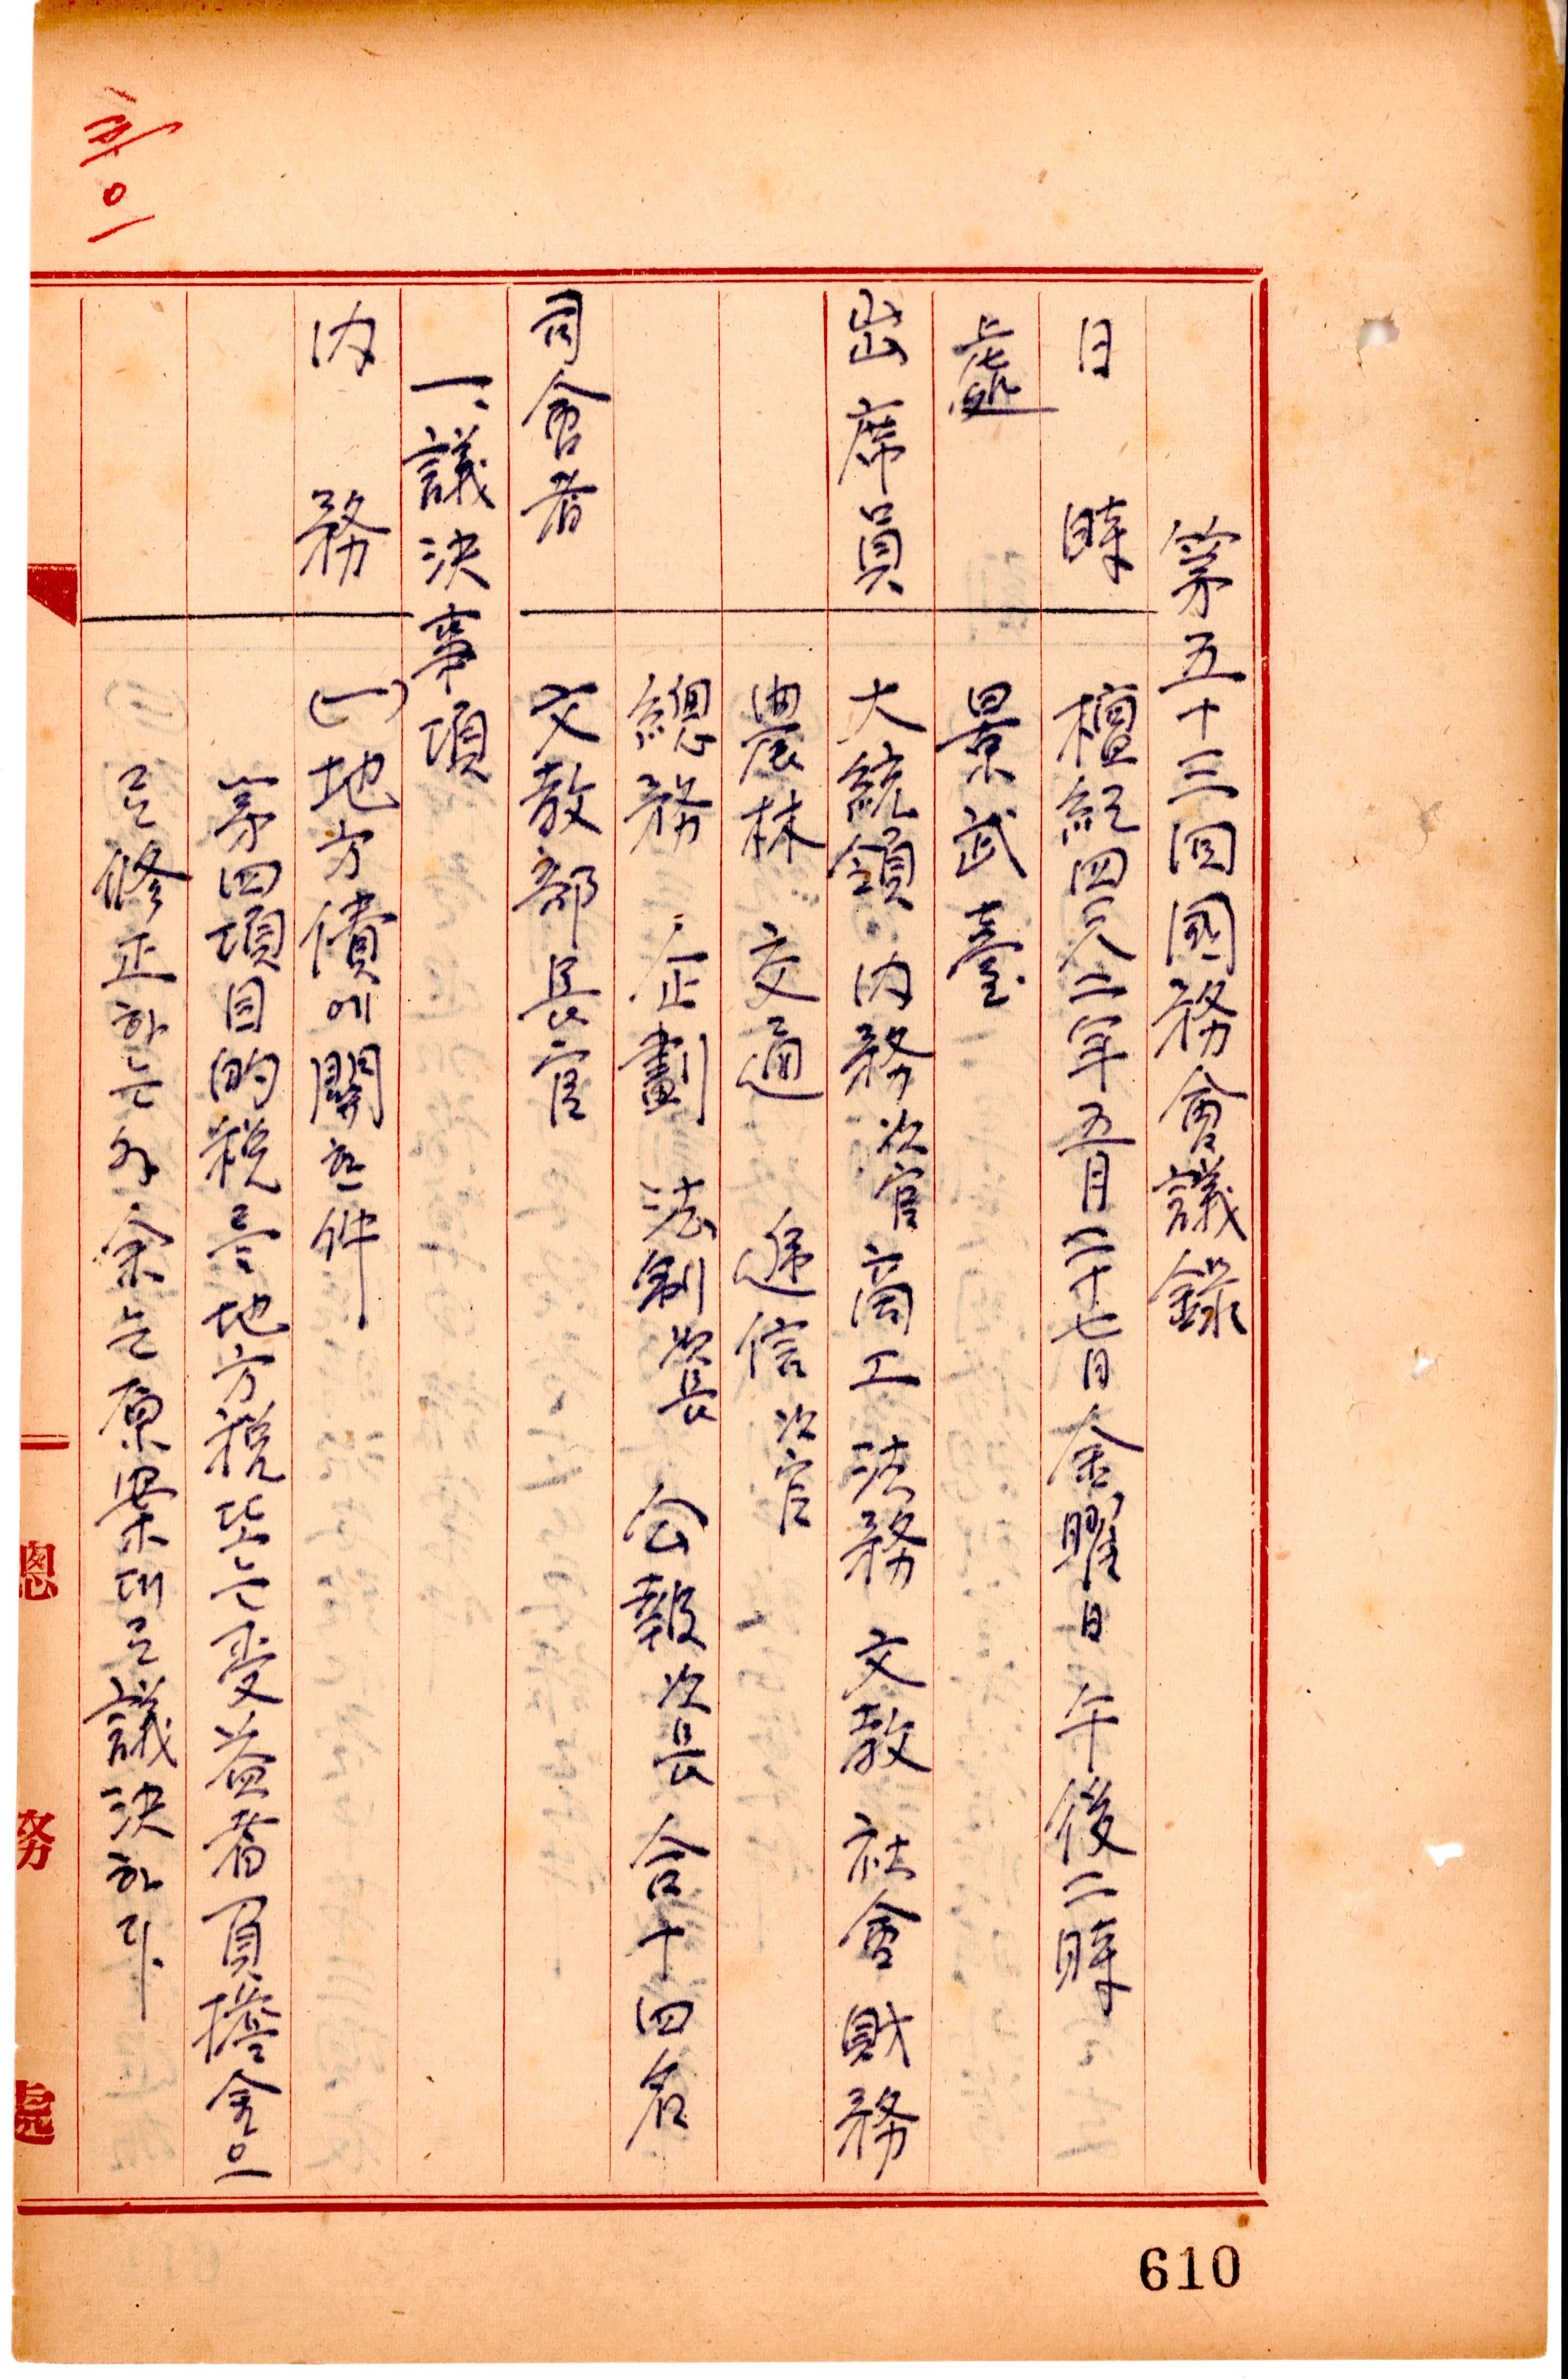 第五十三回國務會議錄
日時 檀紀四二八二年五月二十七日金曜日午後二時
處 景武臺
出席員 大統領 內務次官 商工 法務 文敎 社會 財務
農林 交通 遞信次官
總務 企劃 法制次長 公報次長 合十四名
司會者 文敎部長官
一、議決事項
內務 (一)地方債에關한件
第四項目的稅를地方稅또는受益者負擔金으
로修正하는外余는原案대로議決하다
總務處
610